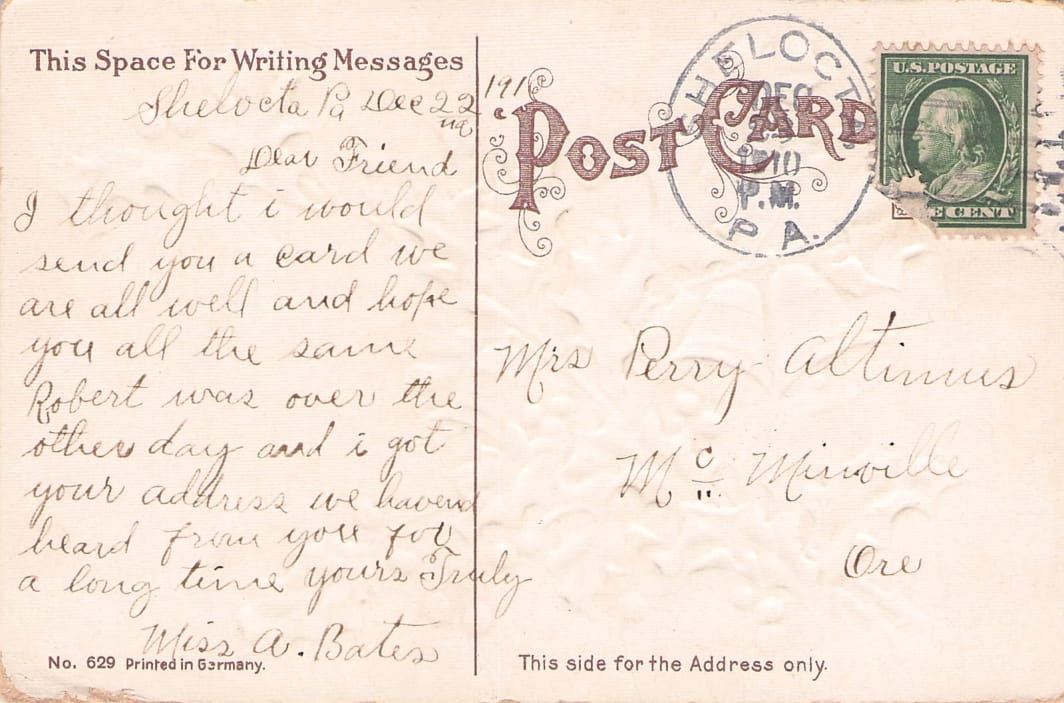 This Space For Writing Messages
Shelocta Pa Dec 22
191
Dear Friend
I thought i would
send you a card we
are all well and hope
you all the same
Robert was over the
other day and i got
your address we havend
heard from you for
a long time yours Truly
Miss A. Bates
No. 629 Printed in Germany.
POST CARD
SHELOCTA
DEC
23
1910
P.M.
PA.
U.S. POSTAGE
E CENT
Mrs Perry Altimus
Mc Minville
Ore
This side for the Address only.